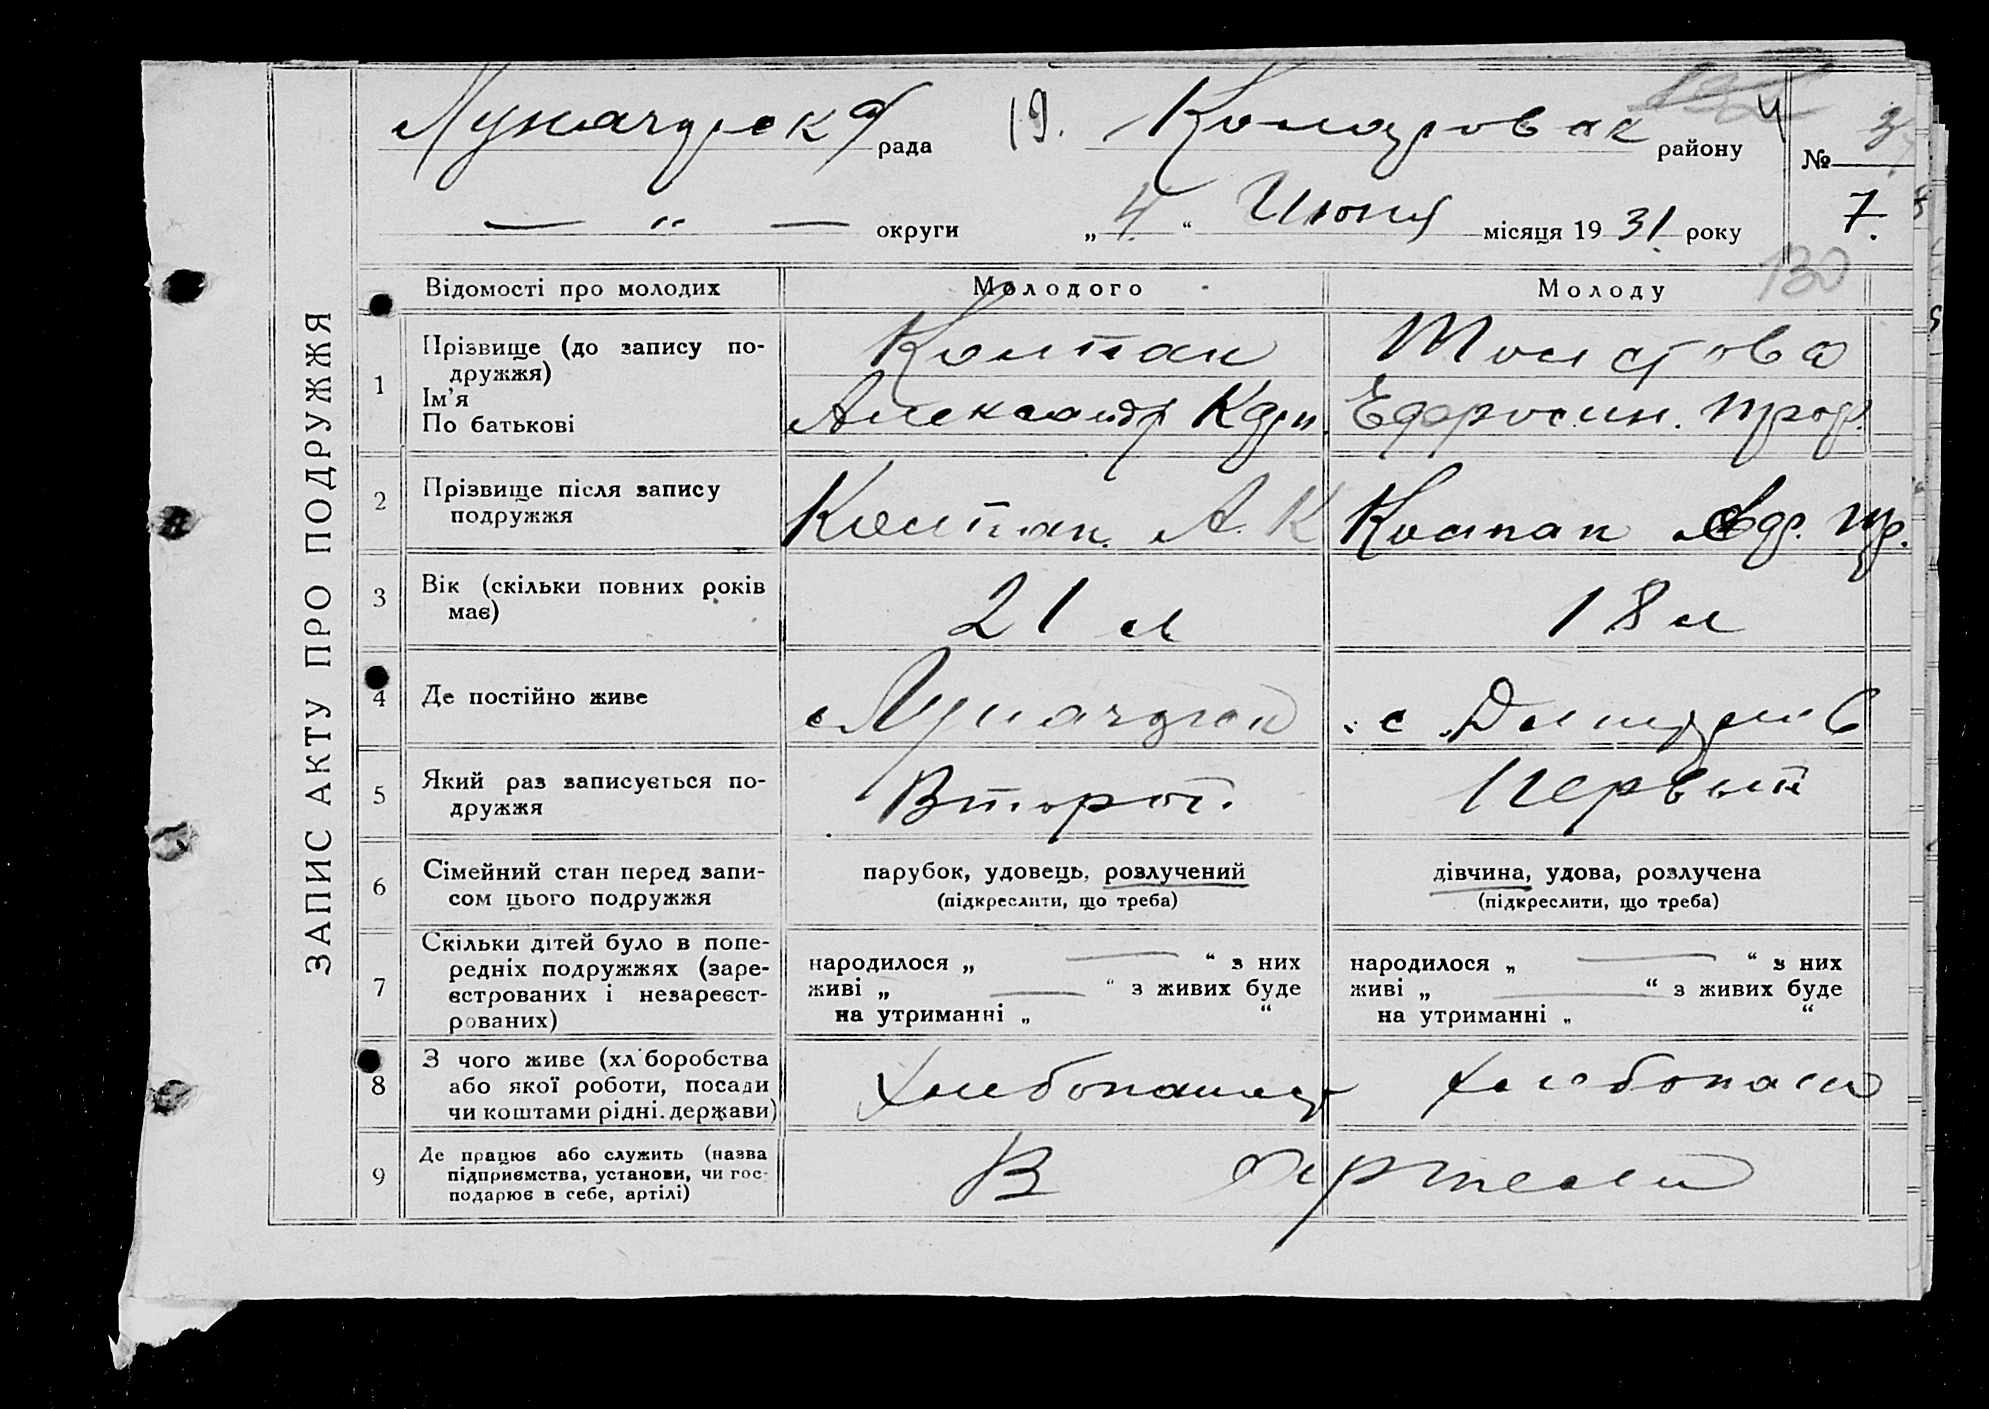 ЗАПИС АКТУ ПРО ПОДРУЖЖЯ
рада 19. району №
— " — округи „4." Июня місяця 1931. року 7.
130
Відомості про молодих Молодого Молоду
1 Прізвище (до запису по-
дружжя)
Ім'я
По батькові
Колпак
Александр Кар.
Толстова
Ефросин. Проф.
2 Прізвище після запису
подружжя
Колпак. А. К
Колпак
3 Вік (скільки повних років
має)
21 л
18 л
4 Де постійно живе
с
с
5 Який раз записується по-
дружжя
Второй.
Первый
6 Сімейний стан перед запи-
сом цього подружжя
парубок, удовець, розлучений
(підкреслити, що треба)
дівчина, удова, розлучена
(підкреслити, що треба)
7 Скільки дітей було в попе-
редніх подружжях (заре-
єстрованих і незареєст-
рованих)
народилося „ — " з них
живі „ — " з живих буде
на утриманні „ "
народилося „ — " з них
живі „ — " з живих буде
на утриманні „ "
8 З чого живе (хліборобства
або якої роботи, посади
чи коштами рідні. держави)
9 Де працює або служить (назва
підприємства, установи, чи гос-
подарює в себе, артілі)
В артели